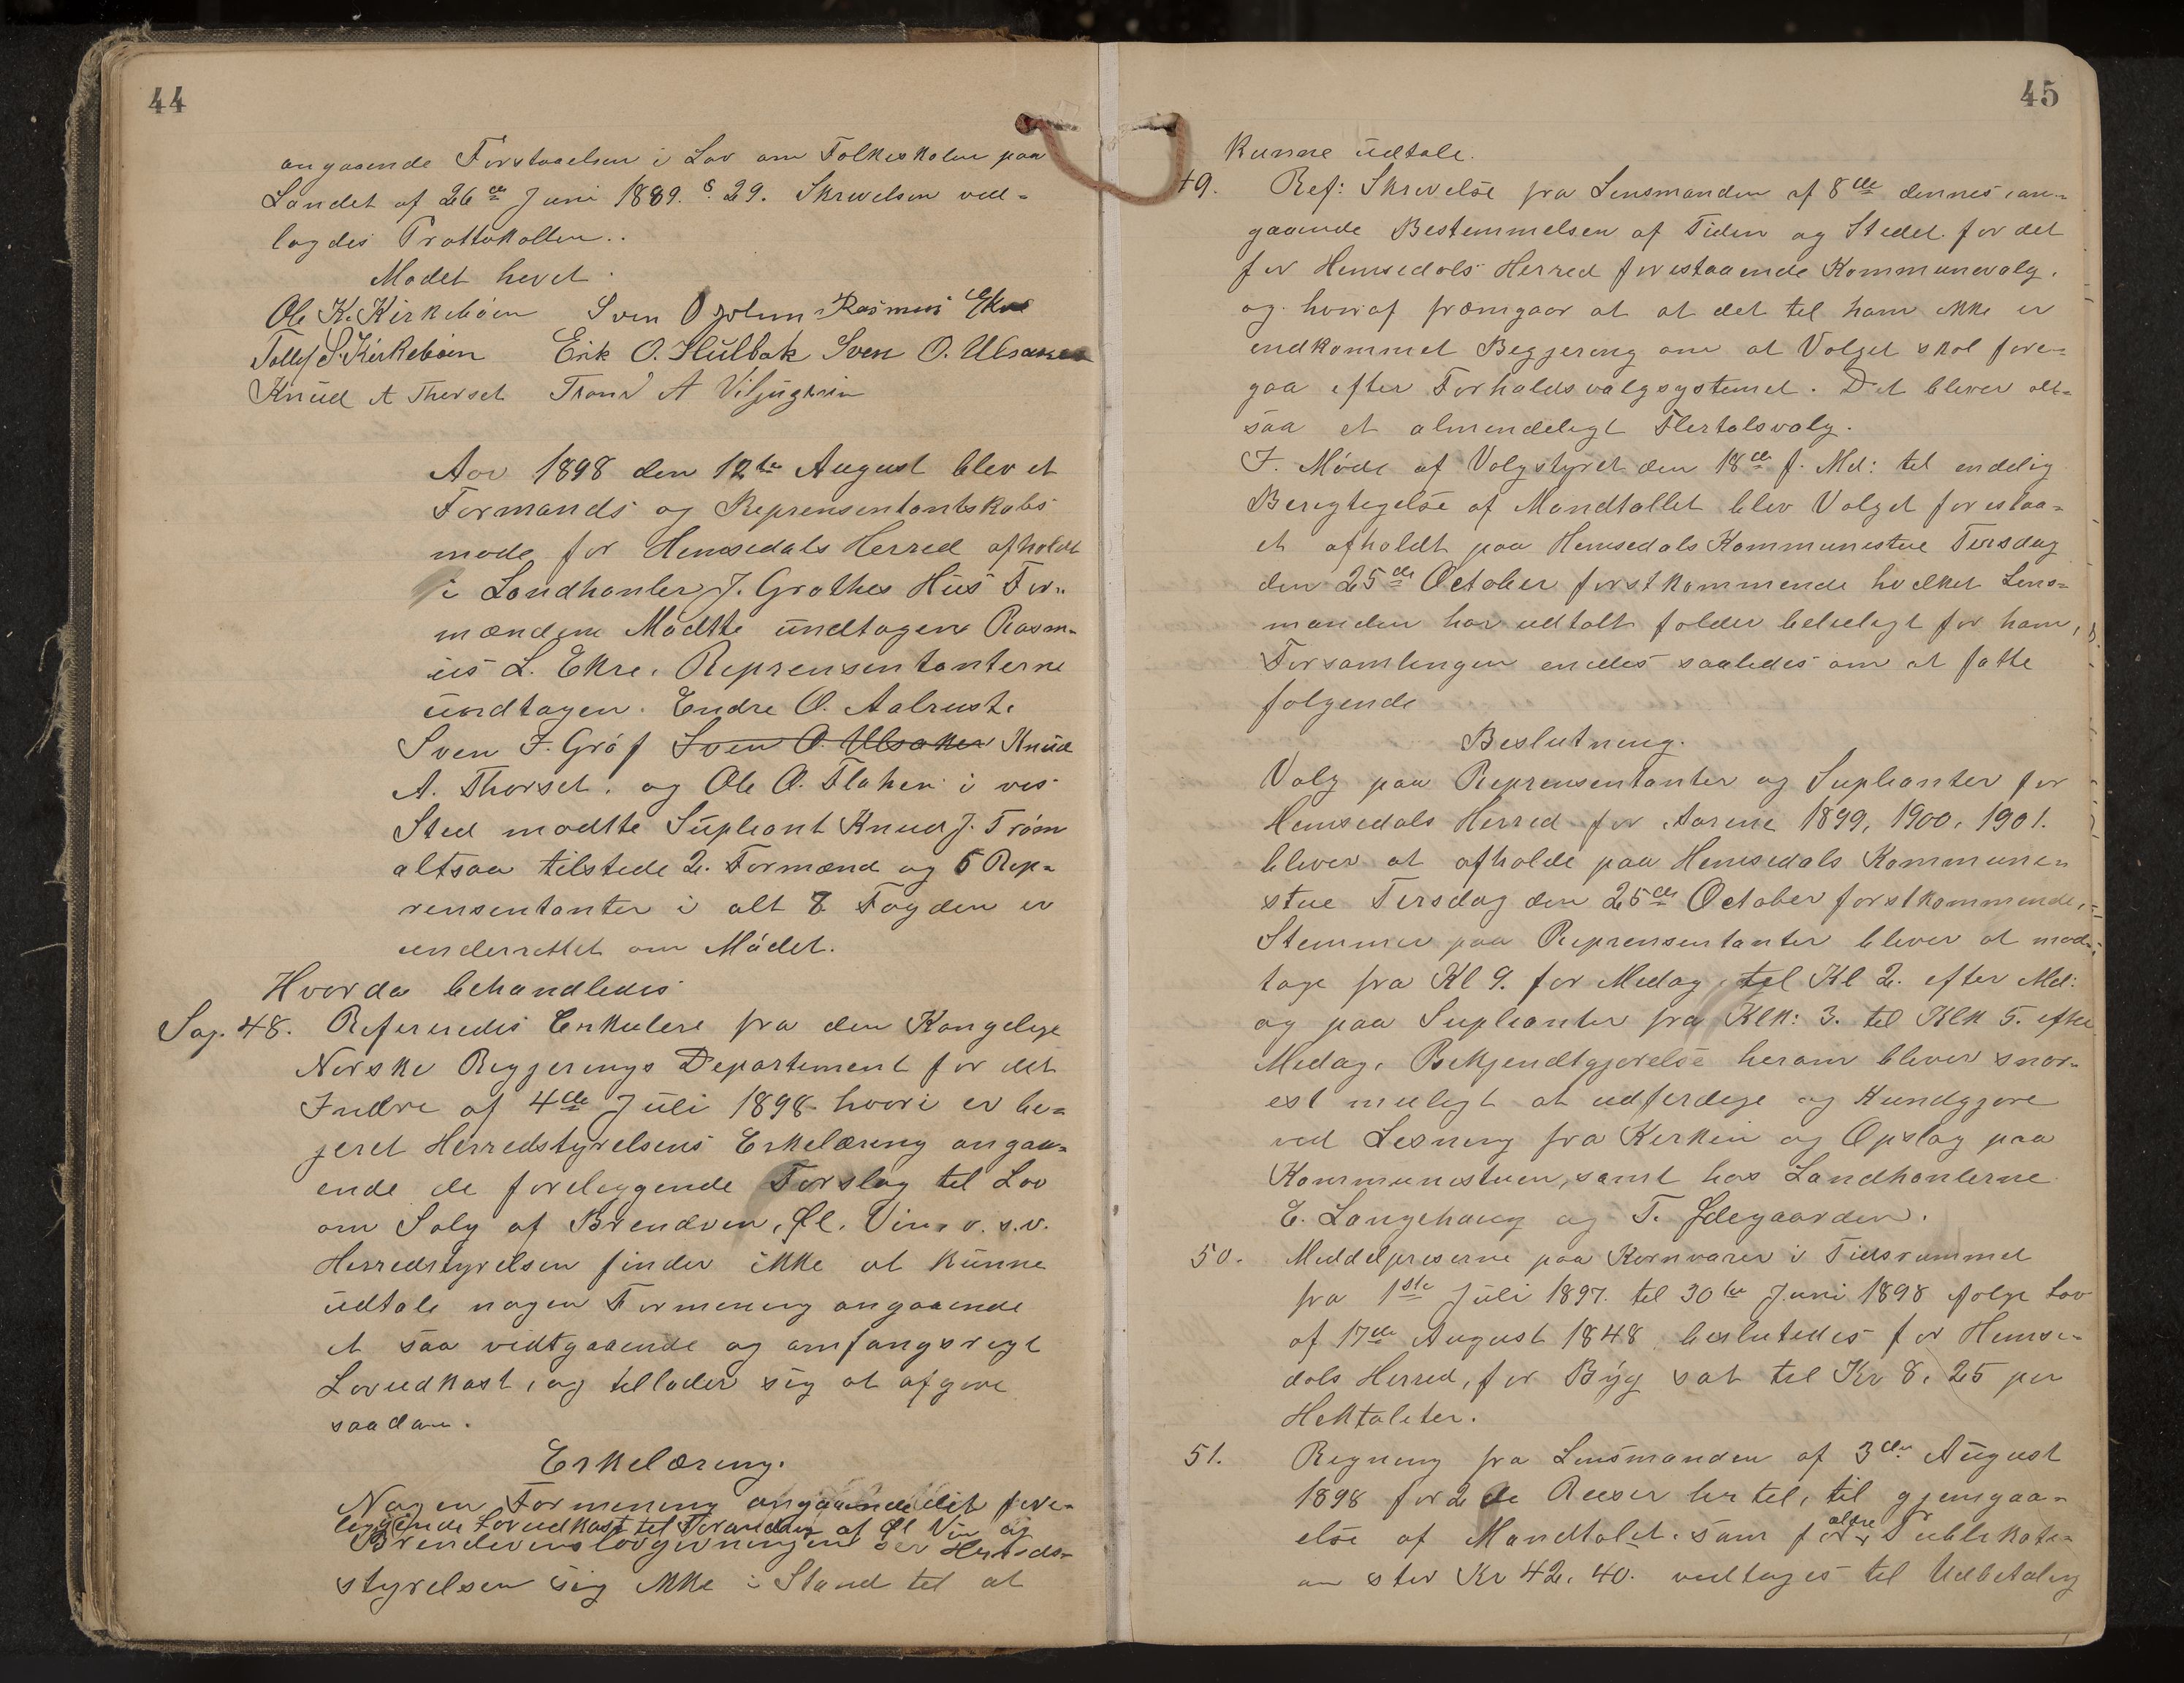 44
angaaende Forstaaelsen i Lov om Folkeskolen paa
Landet af 26de Juni 1889. §. 29. Skrivelsen ved-
lagdes Prottokollen..
Mødet hevet.
Ole K. Kirkebøen Sven O Jolum Rasmus Ekre
Tollef S. Kirkebøen Erik O. Hulbak Sven O. Ulsaker
Knud A Thorset Trond A Viljugrein
Aar 1898 den 12te August blev et
Formands og Reprensentantskabs
møde for Hemsedals Herred afholdt
i Landhanler J. Grøthes Hus For-
mændene Mødtte undtagen Rasm-
us L. Ekre. Reprensentanterne
undtagen. Endre O. Aalrust.
Sven J. Grøf Sven O. Ulsaker Knud
A. Thorset. og Ole O. Flaten i vis
Sted mødtte Supleant Knud J. Trøm
altsaa tilstede 2. Formænd og 6 Rep-
rensentanter i alt 8 Fogden er
underrettet om Mødet.
Hvorda behandledes
Sag. 48. Refereredes Cirkulere fra den Kongelige
Norske Regjerings Departiment for det
Indre af 4de Juli 1898 hvori er be-
jeret Herredstyrelsens Erkelæring angaa-
ende de foreleggende Forslag til Lov
om Salg af Brendven, Øl. Vin. o. s. v.
Herredstyrelsen finder ikke at kunne
udtale nogen Formening angaaende
et saa vidtgaaende og omfangsregt
Lovudkast, og tillader sig at afgive
saadan.
Erkelæring.
Nogen Formening angaaende det fore-
leggende Lovudkast til Forandring af Øl Vin og
Brendevinslovgivningen ser Herreds-
styrelsen sig ikke i Stand til at
45
kunne udtale.
49. Ref: Skrivelse fra Lensmanden af 8de dennes, an-
gaaende Bestemmelsen af Tiden og Stedet for det
for Hemsedals Herred forestaaende Kommunevalg.
og hvoraf fremgaar at at det til ham ikke er
indkommet Begjering om at Valget skal fore-
gaa efter Forholdsvalgsystemet. Det bliver alt-
saa et almendeligt Flertalsvalg.
I. Møde af Valgstyret den 18de f. Md: til endelig
Berigtigelse af Mandtallet blev Valget foreslaa-
et afholdt paa Hemsedals Kommunestue Tirsdag
den 25de October førstkommende hvilket Lens-
manden har udtalt falder beleiligt for ham,
Forsamlingen enedes saaledes om at fatte
følgende
Beslutning.
Valg paa Reprensentanter og Supleanter for
Hemsedals Herred for Aarene 1899, 1900, 1901.
bliver at afholde paa Hemsedals Kommune-
stue Tirsdag den 25de October førstkommende,
Stemmer paa Reprensentanter bliver at mod-
tage fra Kl 9. for Medag til Kl 2. efter Md:
og paa Supleanter fra Klk: 3. til Klk 5. efter
Medag. Bekjendtgjørelse herom bliver snar-
est muligt at udferdige og Kundgjøre
ved Lesning fra Kirken og Opslag paa
Kommunestuen, samt hos Landhanlerne
E. Langehaug og T. Ødegaarden.
50. Meddelpriserne paa Kornvarer i Tidsrummet
fra 1ste Juli 1897. til 30te Juni 1898 følge Lov
af 17de August 1848 beslutedes for Hemse-
dals Herred, for Byg sat til Kr 8. 25 per
Hektoliter.
51. Regning fra Lensmanden af 3de August
1898 for 2de Reiser hertil, til gjengaa-
else af Mandtalet. samt for aldre Publikati-
on stor Kr 42. 40. vedtages til Udbetaling